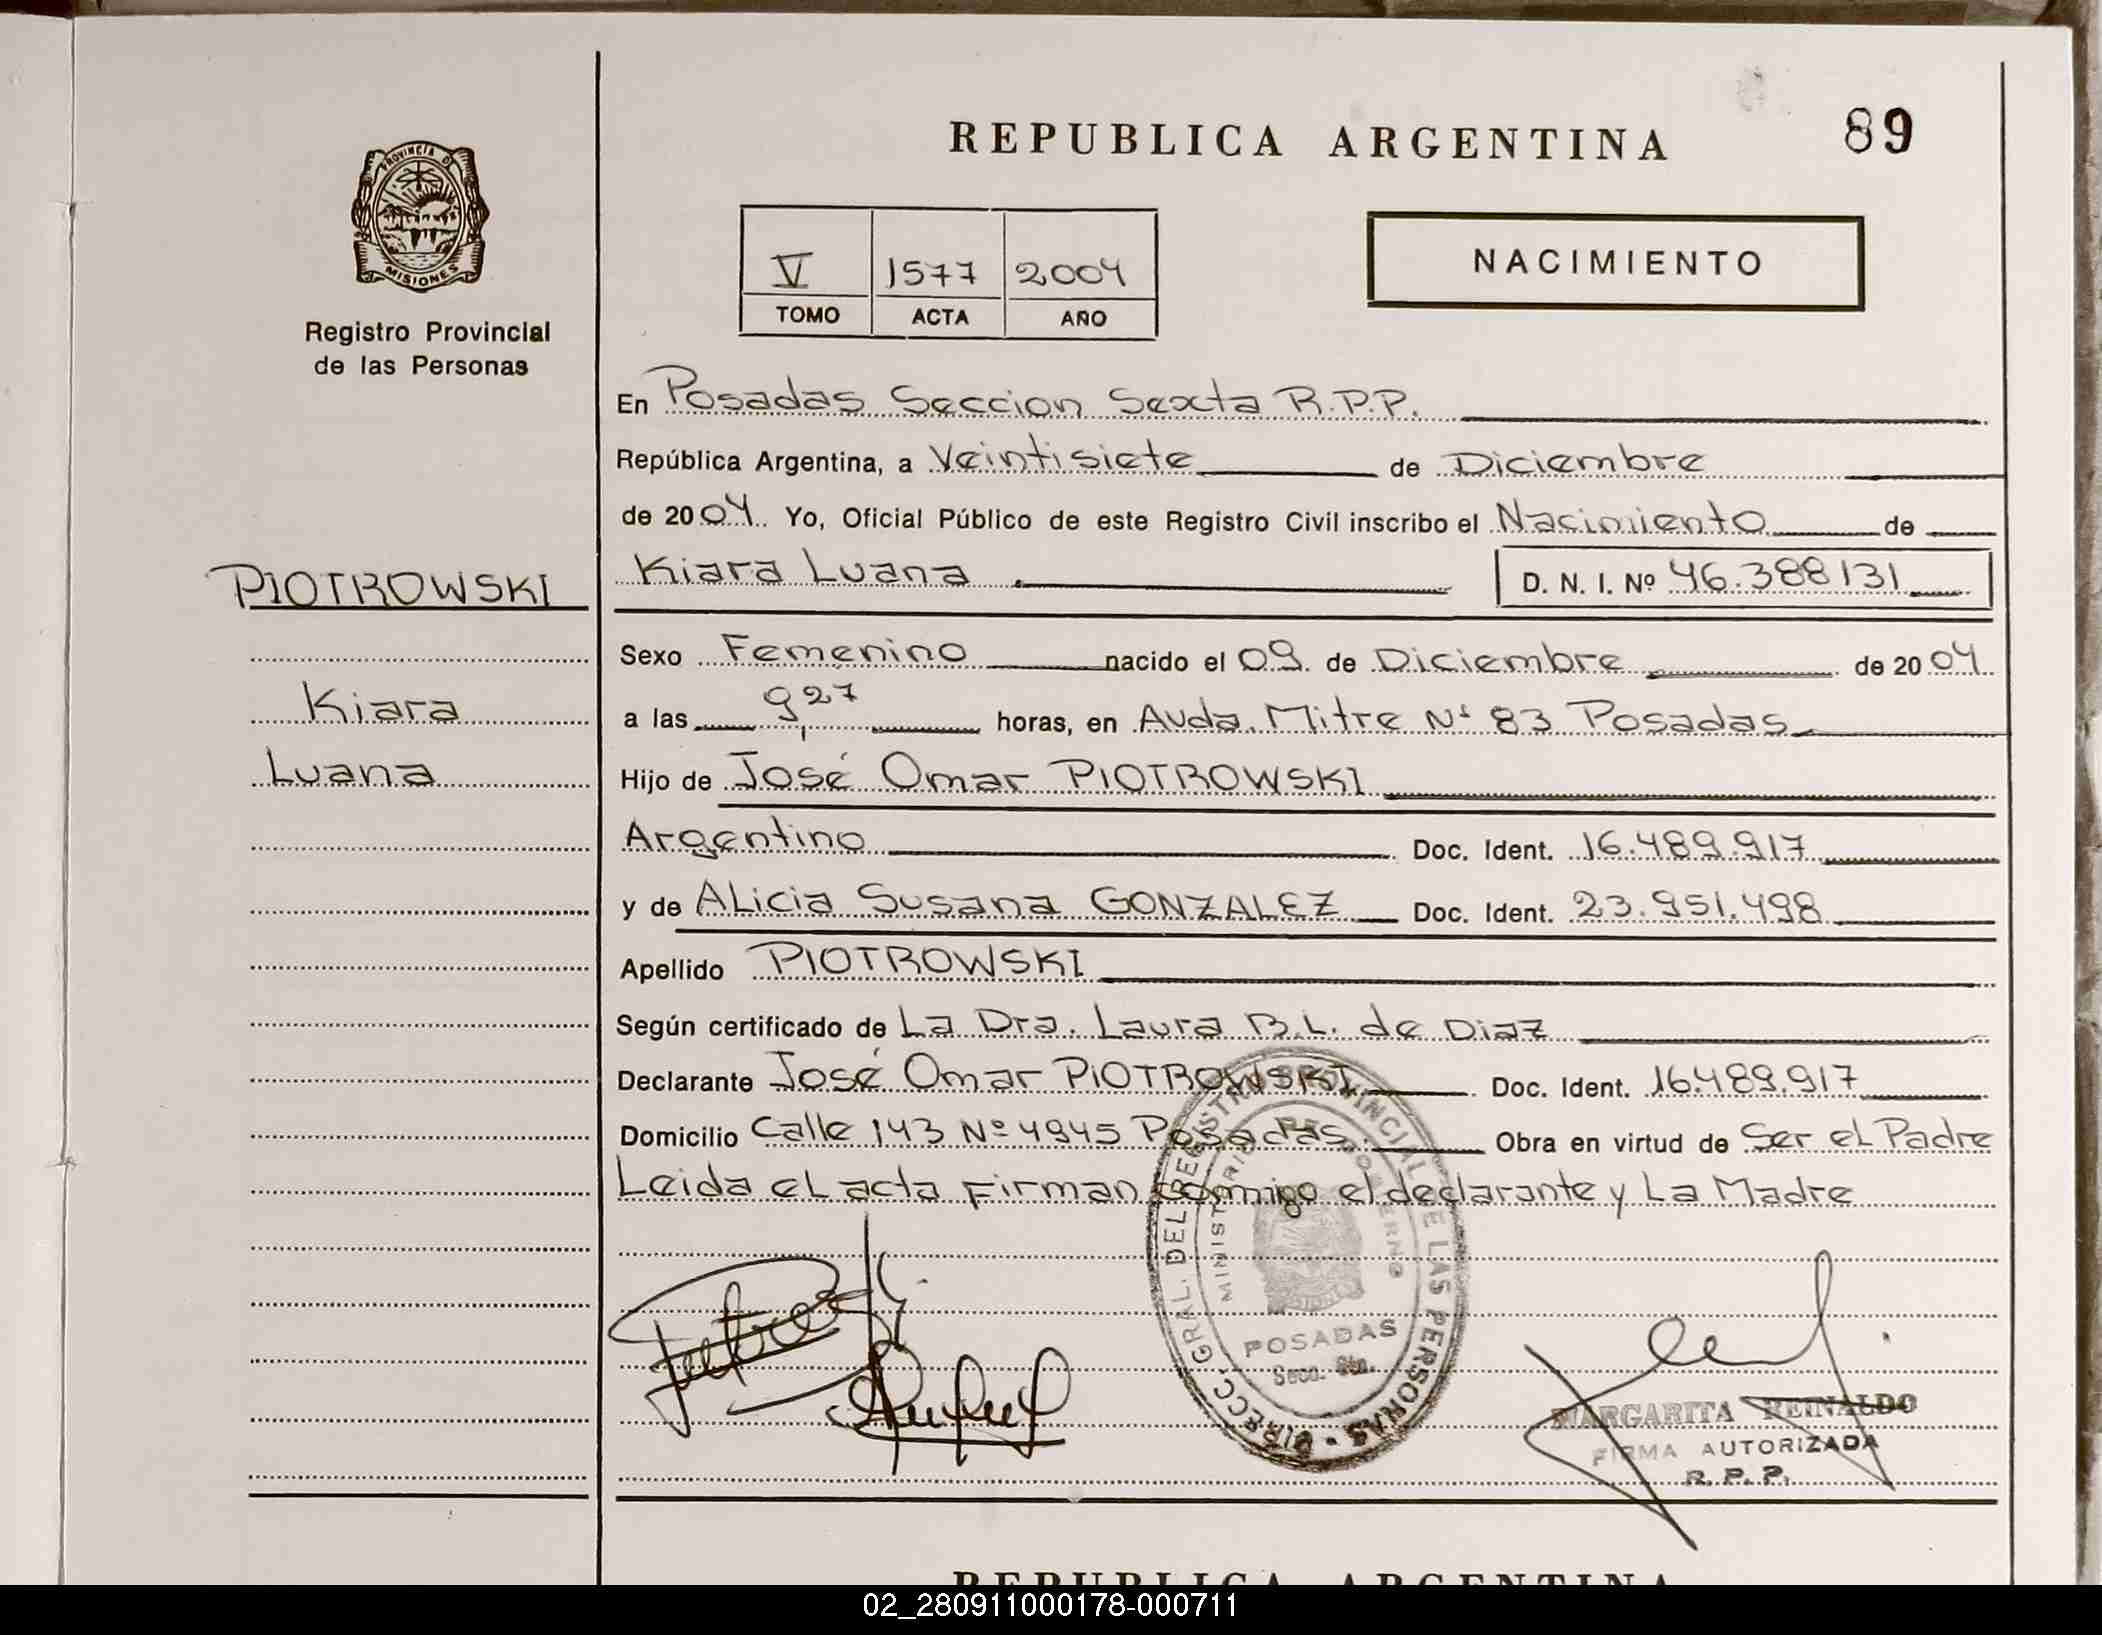 REPUBLICA ARGENTINA
89
PROVINCIA DE
MISIONES
Registro Provincial
de las Personas
V 1577 2004
TOMO ACTA AÑO
NACIMIENTO
En Posadas Seccion Sexta R.P.P.
República Argentina, a Veintisiete de Diciembre
de 2004. Yo, Oficial Público de este Registro Civil inscribo el Nacimiento de
PIOTROWSKI
Kiara Luana D. N. I. Nº 46.388131
Sexo Femenino nacido el 09 de Diciembre de 2004
Kiara
a las 9,27 horas, en Avda. Mitre Nº 83 Posadas
Luana
Hijo de José Omar PIOTROWSKI
Argentino Doc. Ident. 16.489.917
y de ALicia Susana GONZALEZ Doc. Ident. 23.951.498
Apellido PIOTROWSKI
Según certificado de La Dra. Laura B.L. de Diaz
Declarante José Omar PIOTROWSKI Doc. Ident. 16.489.917
Domicilio Calle 143 Nº 4945 Posadas. Obra en virtud de Ser el Padre
Leida el acta Firman conmigo el declarante y La Madre
DIRECC. GRAL. DEL REGISTRO PROVINCIAL DE LAS PERSONAS
MINISTERIO DE GOBIERNO
POSADAS
Secc. 6ta.
MARGARITA REINALDO
FIRMA AUTORIZADA
R. P. P.
REPUBLICA ARGENTINA
02_280911000178-000711